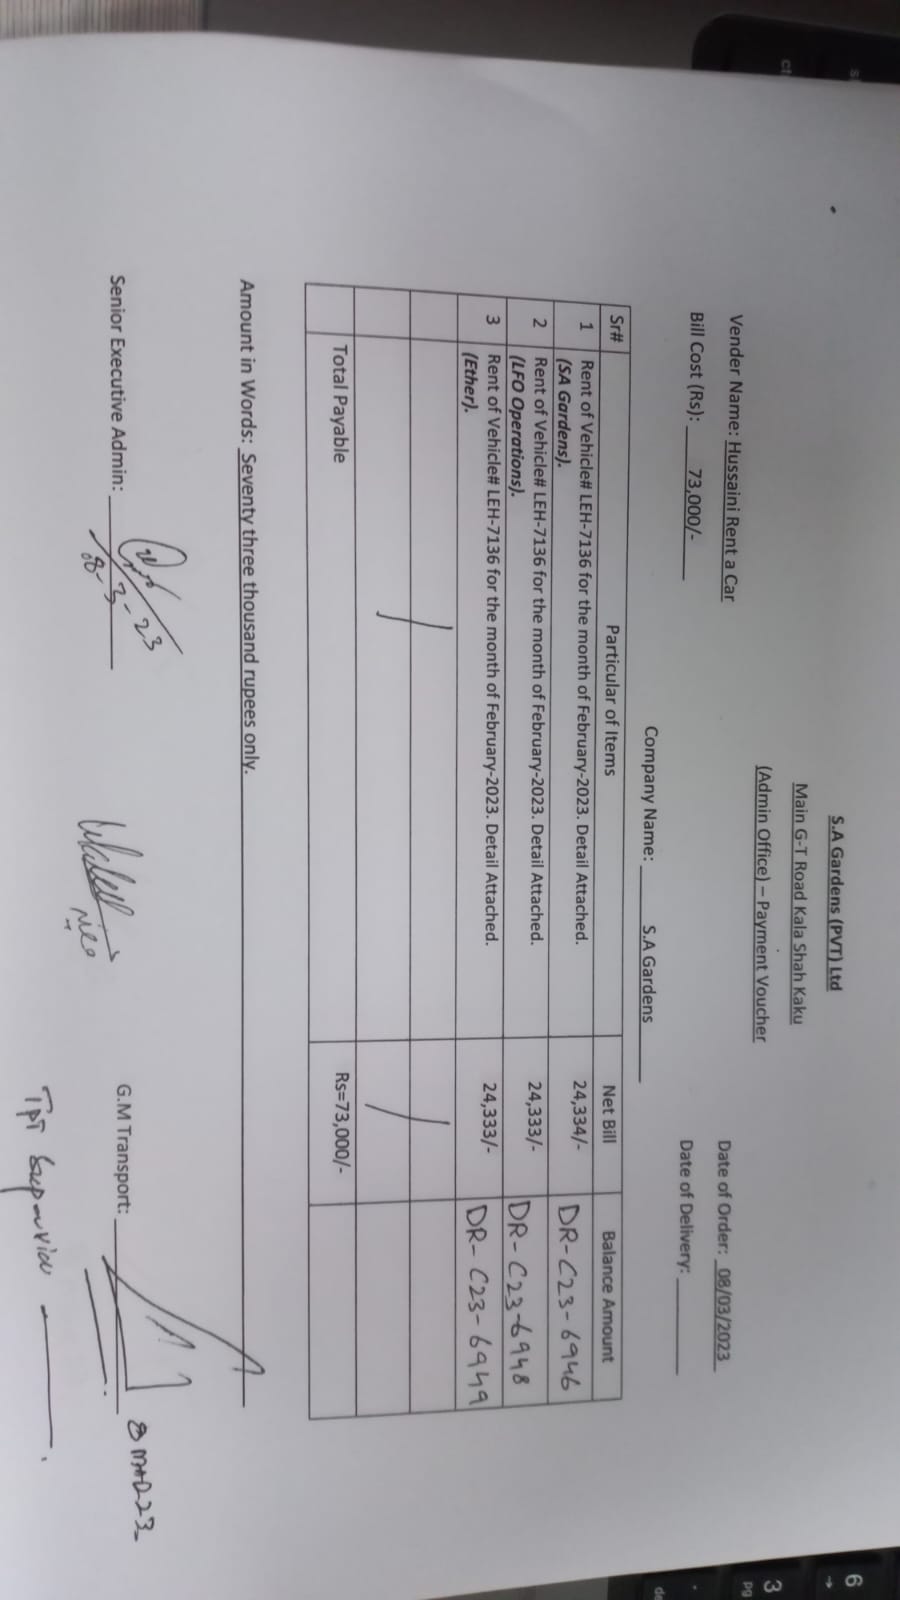 S.A Gardens (PVT) Ltd
Main G-T Road Kala Shah Kaku
(Admin Office) – Payment Voucher
Vender Name: Hussaini Rent a Car
Date of Order: 08/03/2023
Bill Cost (Rs): 73,000/-
Company Name: S.A Gardens
Date of Delivery:
Sr# Particular of Items Net Bill Balance Amount
1 Rent of Vehicle# LEH-7136 for the month of February-2023. Detail Attached. 24,334/- DR-C23-6946
(SA Gardens).
2 Rent of Vehicle# LEH-7136 for the month of February-2023. Detail Attached. 24,333/- DR-C23-6948
(LFO Operations).
3 Rent of Vehicle# LEH-7136 for the month of February-2023. Detail Attached. 24,333/- DR-C23-6949
(Ether).
Total Payable Rs=73,000/-
Amount in Words: Seventy three thousand rupees only.
Senior Executive Admin:
08-3-23
G.M Transport:
Tpt